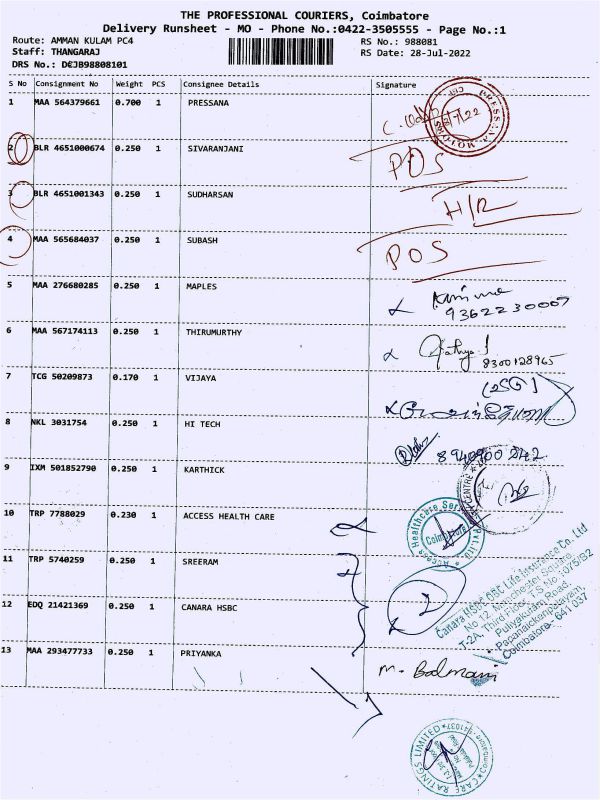 THE PROFESSIONAL COURIERS, Coimbatore
Delivery Runsheet - MO - Phone No.:0422-3505555 - Page No.:1
Route: AMMAN KULAM PC4
RS No.: 988081
Staff: THANGARAJ
RS Date: 28-Jul-2022
DRS No.: DEJB98808101
S No Consignment No Weight PCS Consignee Details Signature
1 MAA 564379661 0.700 1 PRESSANA
2 BLR 4651000674 0.250 1 SIVARANJANI POS
3 BLR 4651001343 0.250 1 SUDHARSAN H/R
4 MAA 565684037 0.250 1 SUBASH POS
5 MAA 276680285 0.250 1 MAPLES
9362230007
6 MAA 567174113 0.250 1 THIRUMURTHY
8300128965
7 TCG 50209873 0.170 1 VIJAYA
8 NKL 3031754 0.250 1 HI TECH
8940900242
9 IXM 501852790 0.250 1 KARTHICK
CENTRE
10 TRP 7788029 0.230 1 ACCESS HEALTH CARE
Access Healthcare Services Pvt Ltd
Coimbatore
11 TRP 5740259 0.250 1 SREERAM
12 EDQ 21421369 0.250 1 CANARA HSBC 2
Canara HSBC OBC Life Insurance Co. Ltd
No 12, Manchester Square,
T-2A, Third Floor, T.S No: 075/B2
Puliyakulam Road,
Papanaickenpalayam,
Coimbatore - 641 037
13 MAA 293477733 0.250 1 PRIYANKA M. Balmani
CARE RATINGS LIMITED